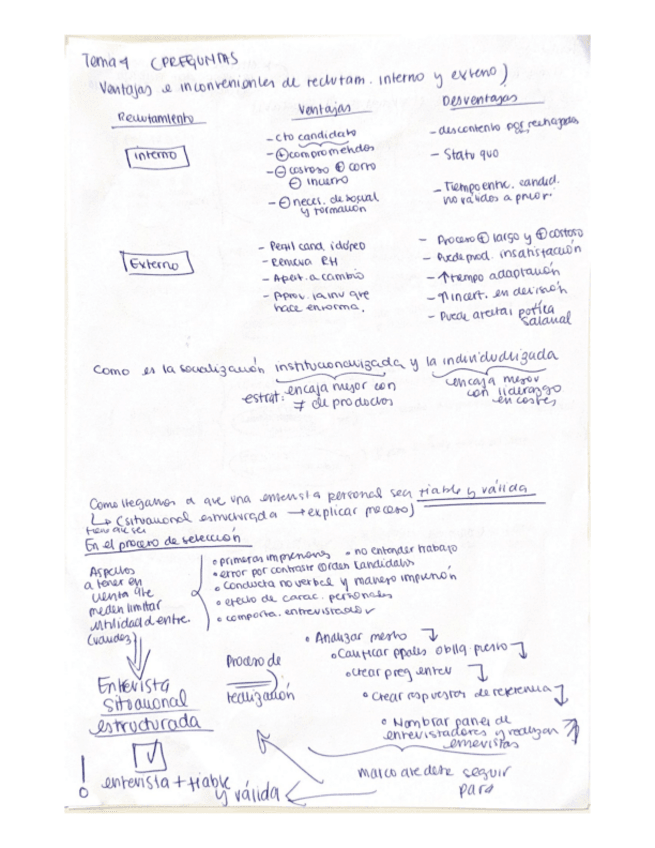 Tema 4 (PREGUNTAS
Ventajas e inconvenientes de reclutam. interno y externo)
Reclutamiento Ventajas Desventajas
Interno
- cto candidato
- ⊕ compromendos
- ⊖ costoso ⊕ corto
⊖ incierto
- ⊖ neces. de social
y formación
- descontento por rechazados
- Statu quo
- Tiempo entre. candid.
no válidos a priori
Externo
- Perfil cand. idóneo
- Renueva RH
- Apert. a cambio
- Aprov. la inv que
hace en forma.
- Proceso ⊕ largo y ⊕ costoso
- Puede prod. insatisfacción
- ↑ tiempo adaptación
- ↑ incert. en decisión
- Puede afectar política
salarial
Como es la socialización institucionalizada y la individualizada
estrat: encaja mejor con
≠ de productos
encaja mejor
con liderazgo
en costes
Como llegamos a que una entrevista personal sea fiable y válida
↳ (situacional estructurada → explicar proceso)
tiene que ser
En el proceso de selección
Aspectos
a tener en
cuenta que
pueden limitar
utilidad d entre.
(validez)
• primeras impresiones • no entender trabajo
• error por contraste (orden candidatos
• conducta no verbal y manejo impresión
• efecto de carac. personales
• comporta. entrevistador
Entrevista
situacional
estructurada
! entrevista + fiable
y válida
Proceso de
realización
• Analizar
• Crear preg entrev
• Crear respuestas de referencia
• Nombrar panel de
entrevistadores y realizan
entrevistas
marco que debe seguir
para